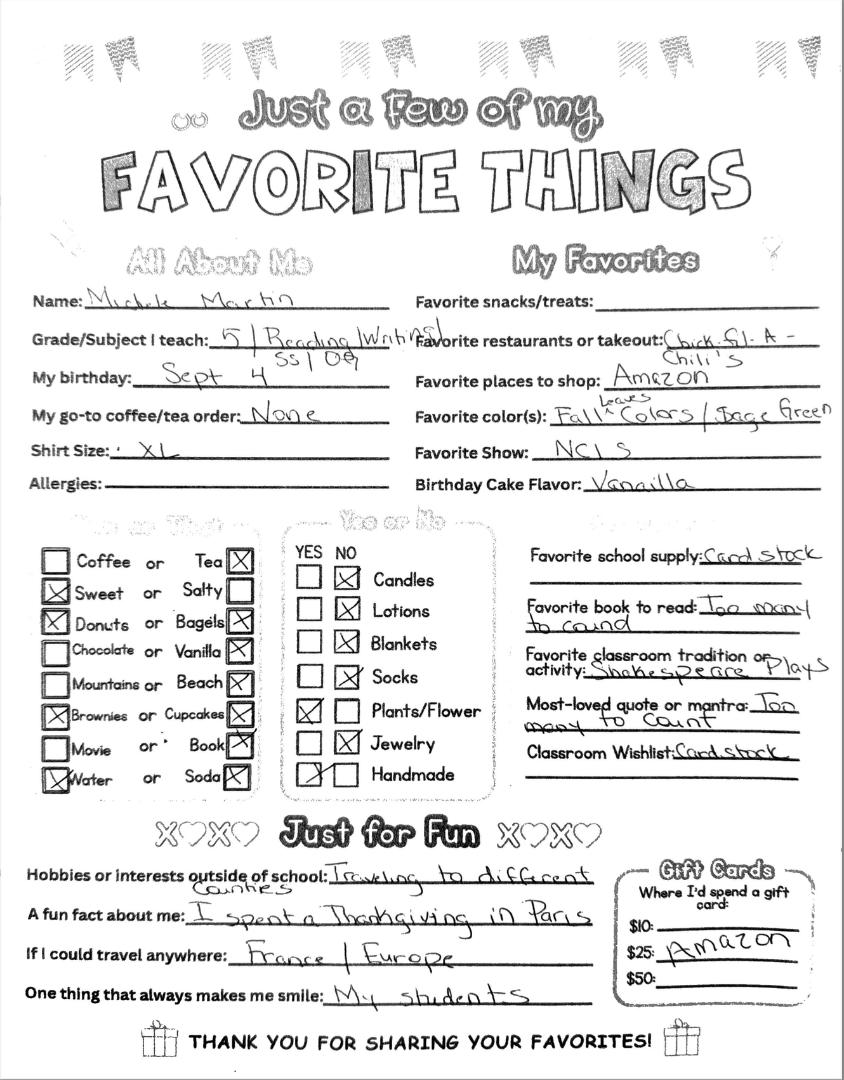 Just a Few of my
FAVORITE THINGS
All About Me
Name: Michele Martin
Grade/Subject I teach: 5 | Reading/Writing/
SS|
My birthday: Sept 4
My go-to coffee/tea order: None
Shirt Size: XL
Allergies:
My Favorites
Favorite snacks/treats:
Favorite restaurants or takeout: Chick-fil-A -
Chili's
Favorite places to shop: Amazon
leaves
Favorite color(s): Fall ^ Colors / Sage Green
Favorite Show: NCIS
Birthday Cake Flavor: Vanailla
This or That
Coffee or Tea
Sweet or Salty
Donuts or Bagels
Chocolate or Vanilla
Mountains or Beach
Brownies or Cupcakes
Movie or Book
Water or Soda
Yes or No
YES NO
Candles
Lotions
Blankets
Socks
Plants/Flower
Jewelry
Handmade
Favorite school supply: Card stock
Favorite book to read: Too many
to cound
Favorite classroom tradition or
activity: Shakespeare Plays
Most-loved quote or mantra: Too
many to count
Classroom Wishlist: Card stock
XOXO Just for Fun XOXO
Hobbies or interests outside of school: Traveling to different
Counties
A fun fact about me: I spent a Thankgiving in Paris
If I could travel anywhere: France / Europe
One thing that always makes me smile: My students
Gift Cards
Where I'd spend a gift
card:
$10:
$25: Amazon
$50:
THANK YOU FOR SHARING YOUR FAVORITES!